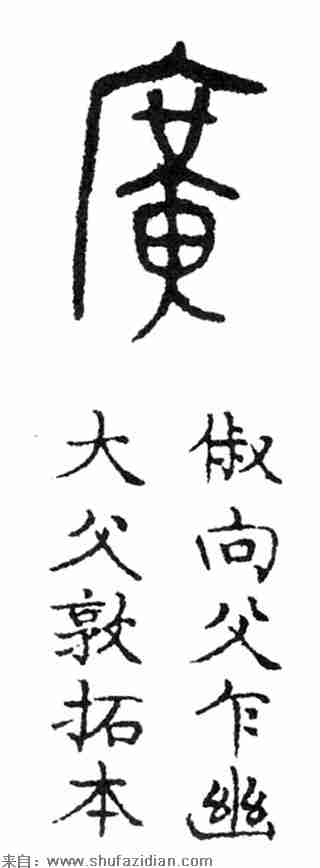 廣
俶向父乍幽
大父敦拓本
来自：www.shufazidian.com